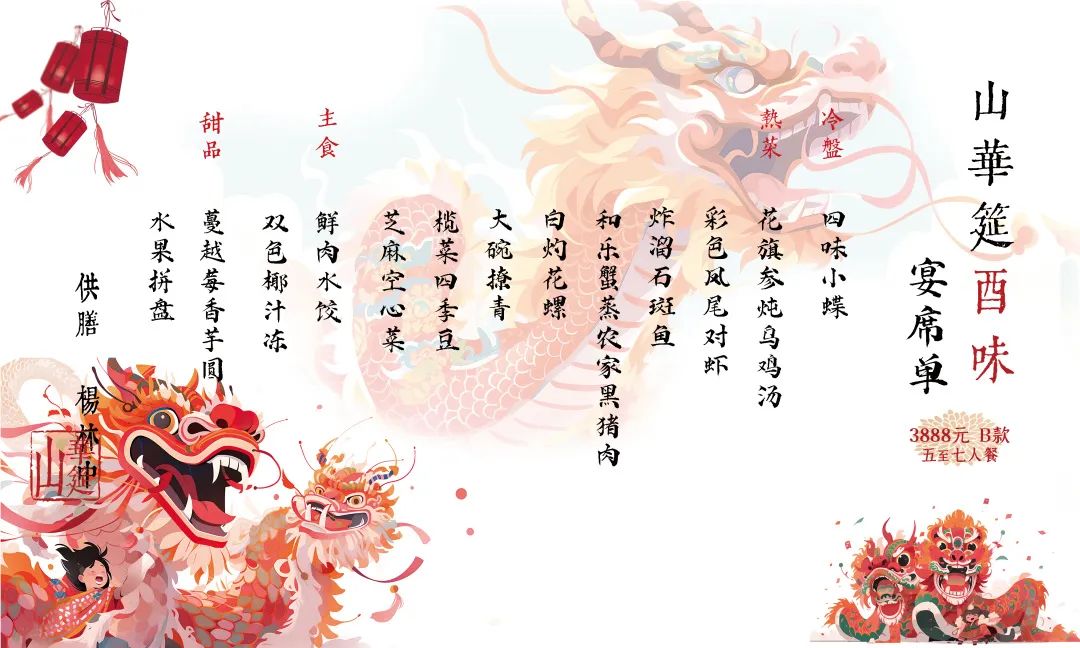 山華筵酉味
宴席单
3888元 B款
五至七人餐
冷盤
四味小蝶
熱菜
花旗参炖乌鸡汤
彩色凤尾对虾
炸溜石斑鱼
和乐蟹蒸农家黑猪肉
白灼花螺
大碗撩青
榄菜四季豆
芝麻空心菜
主食
鲜肉水饺
双色椰汁冻
甜品
蔓越莓香芋圓
水果拼盘
供膳 楊林中
山華筵